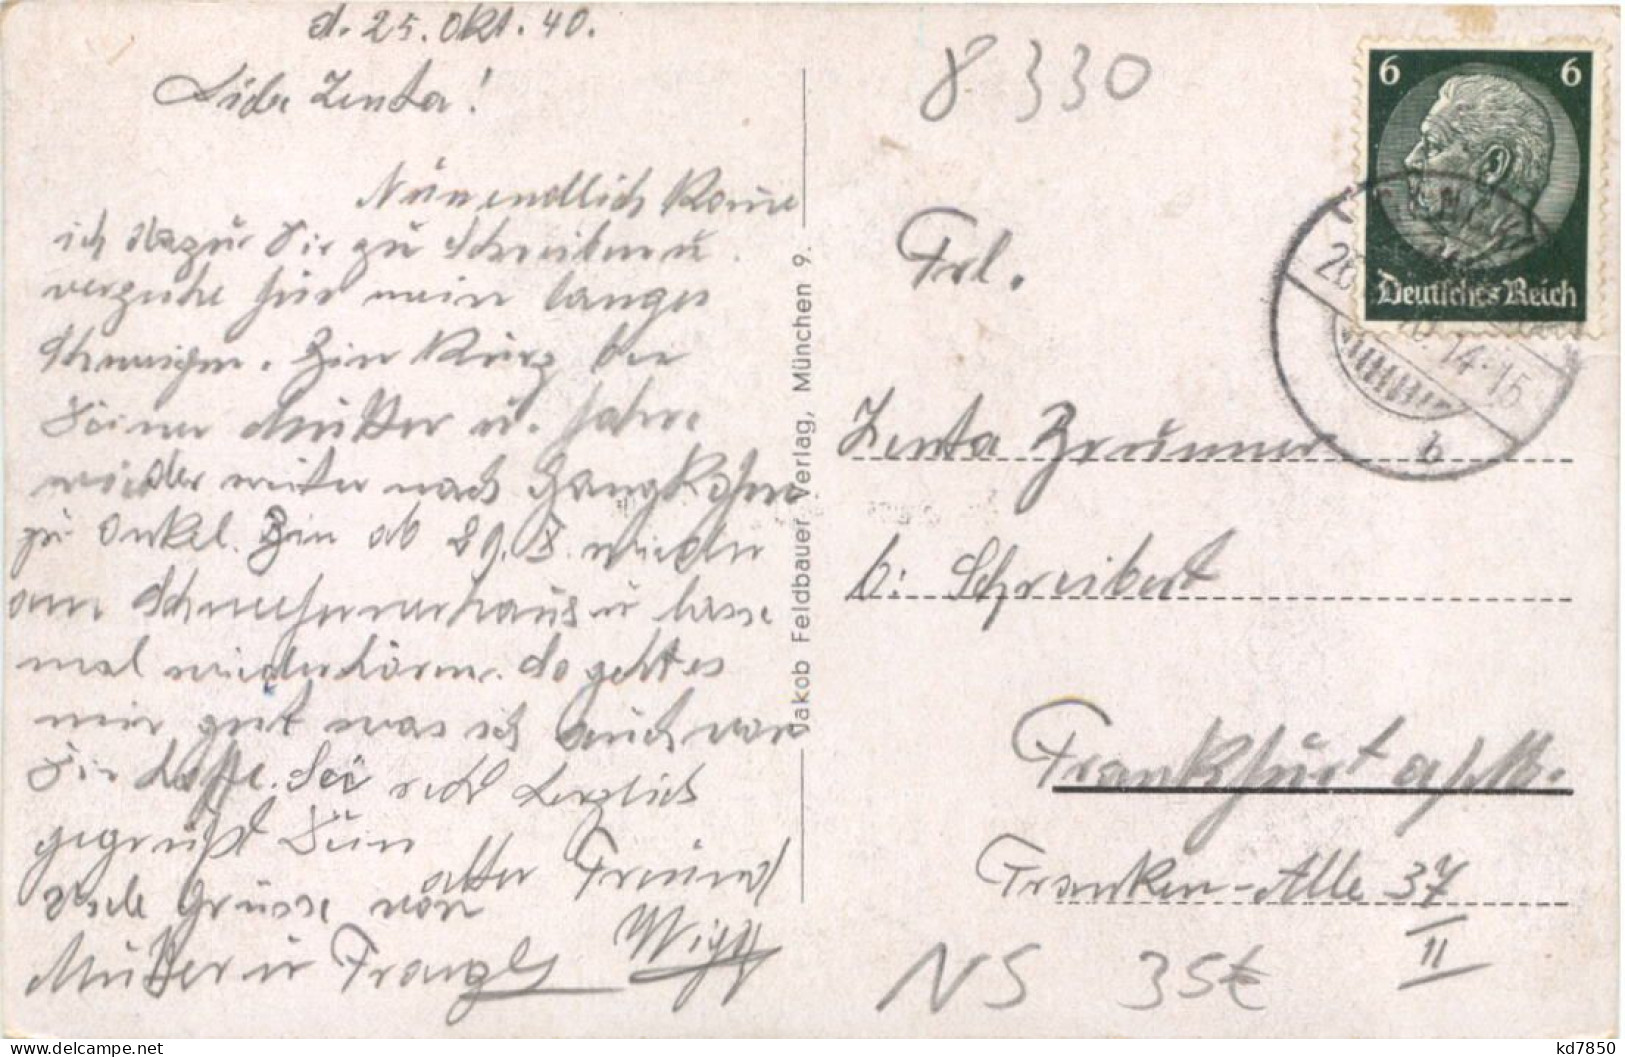 d. 25. Okt. 40.
Liebe Zenta!
Nun endlich komme
ich dazu Dir zu schreiben u.
verzeihe für mein langes
Schweigen. Bin kurz bei
Deiner Mutter u. fahre
wieder weiter nach Gangkofen
zu Onkel. Bin ab 29. X. wieder
am Schneefernerhaus u lasse
mal wieder hören. So geht es
mir gut was ich auch von
Dir hoffe. Sei recht herzlich
gegrüßt Dein
alter Freund
Wigg
Viele Grüsse von
Mutter u Franzl
Jakob Feldbauer Verlag, München 9.
8330
6 6
Deutsches Reich
14-15
b
Frl.
Zenta Brunner
b: Schreibert
Frankfurt a/M.
Franken-Alle 37
II
NS 35€
kd7850